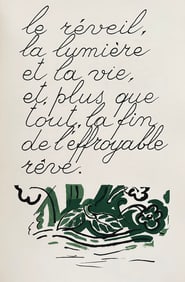 le réveil,
la lumière
et la vie,
et, plus que
tout, la fin
de l'effroyable
rêve.